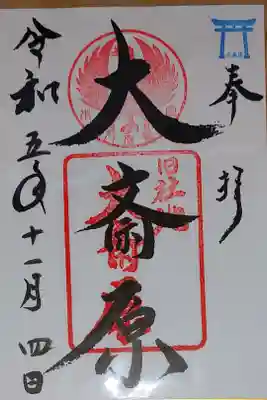 奉拝
大斎原
旧社地
令和五年十一月四日